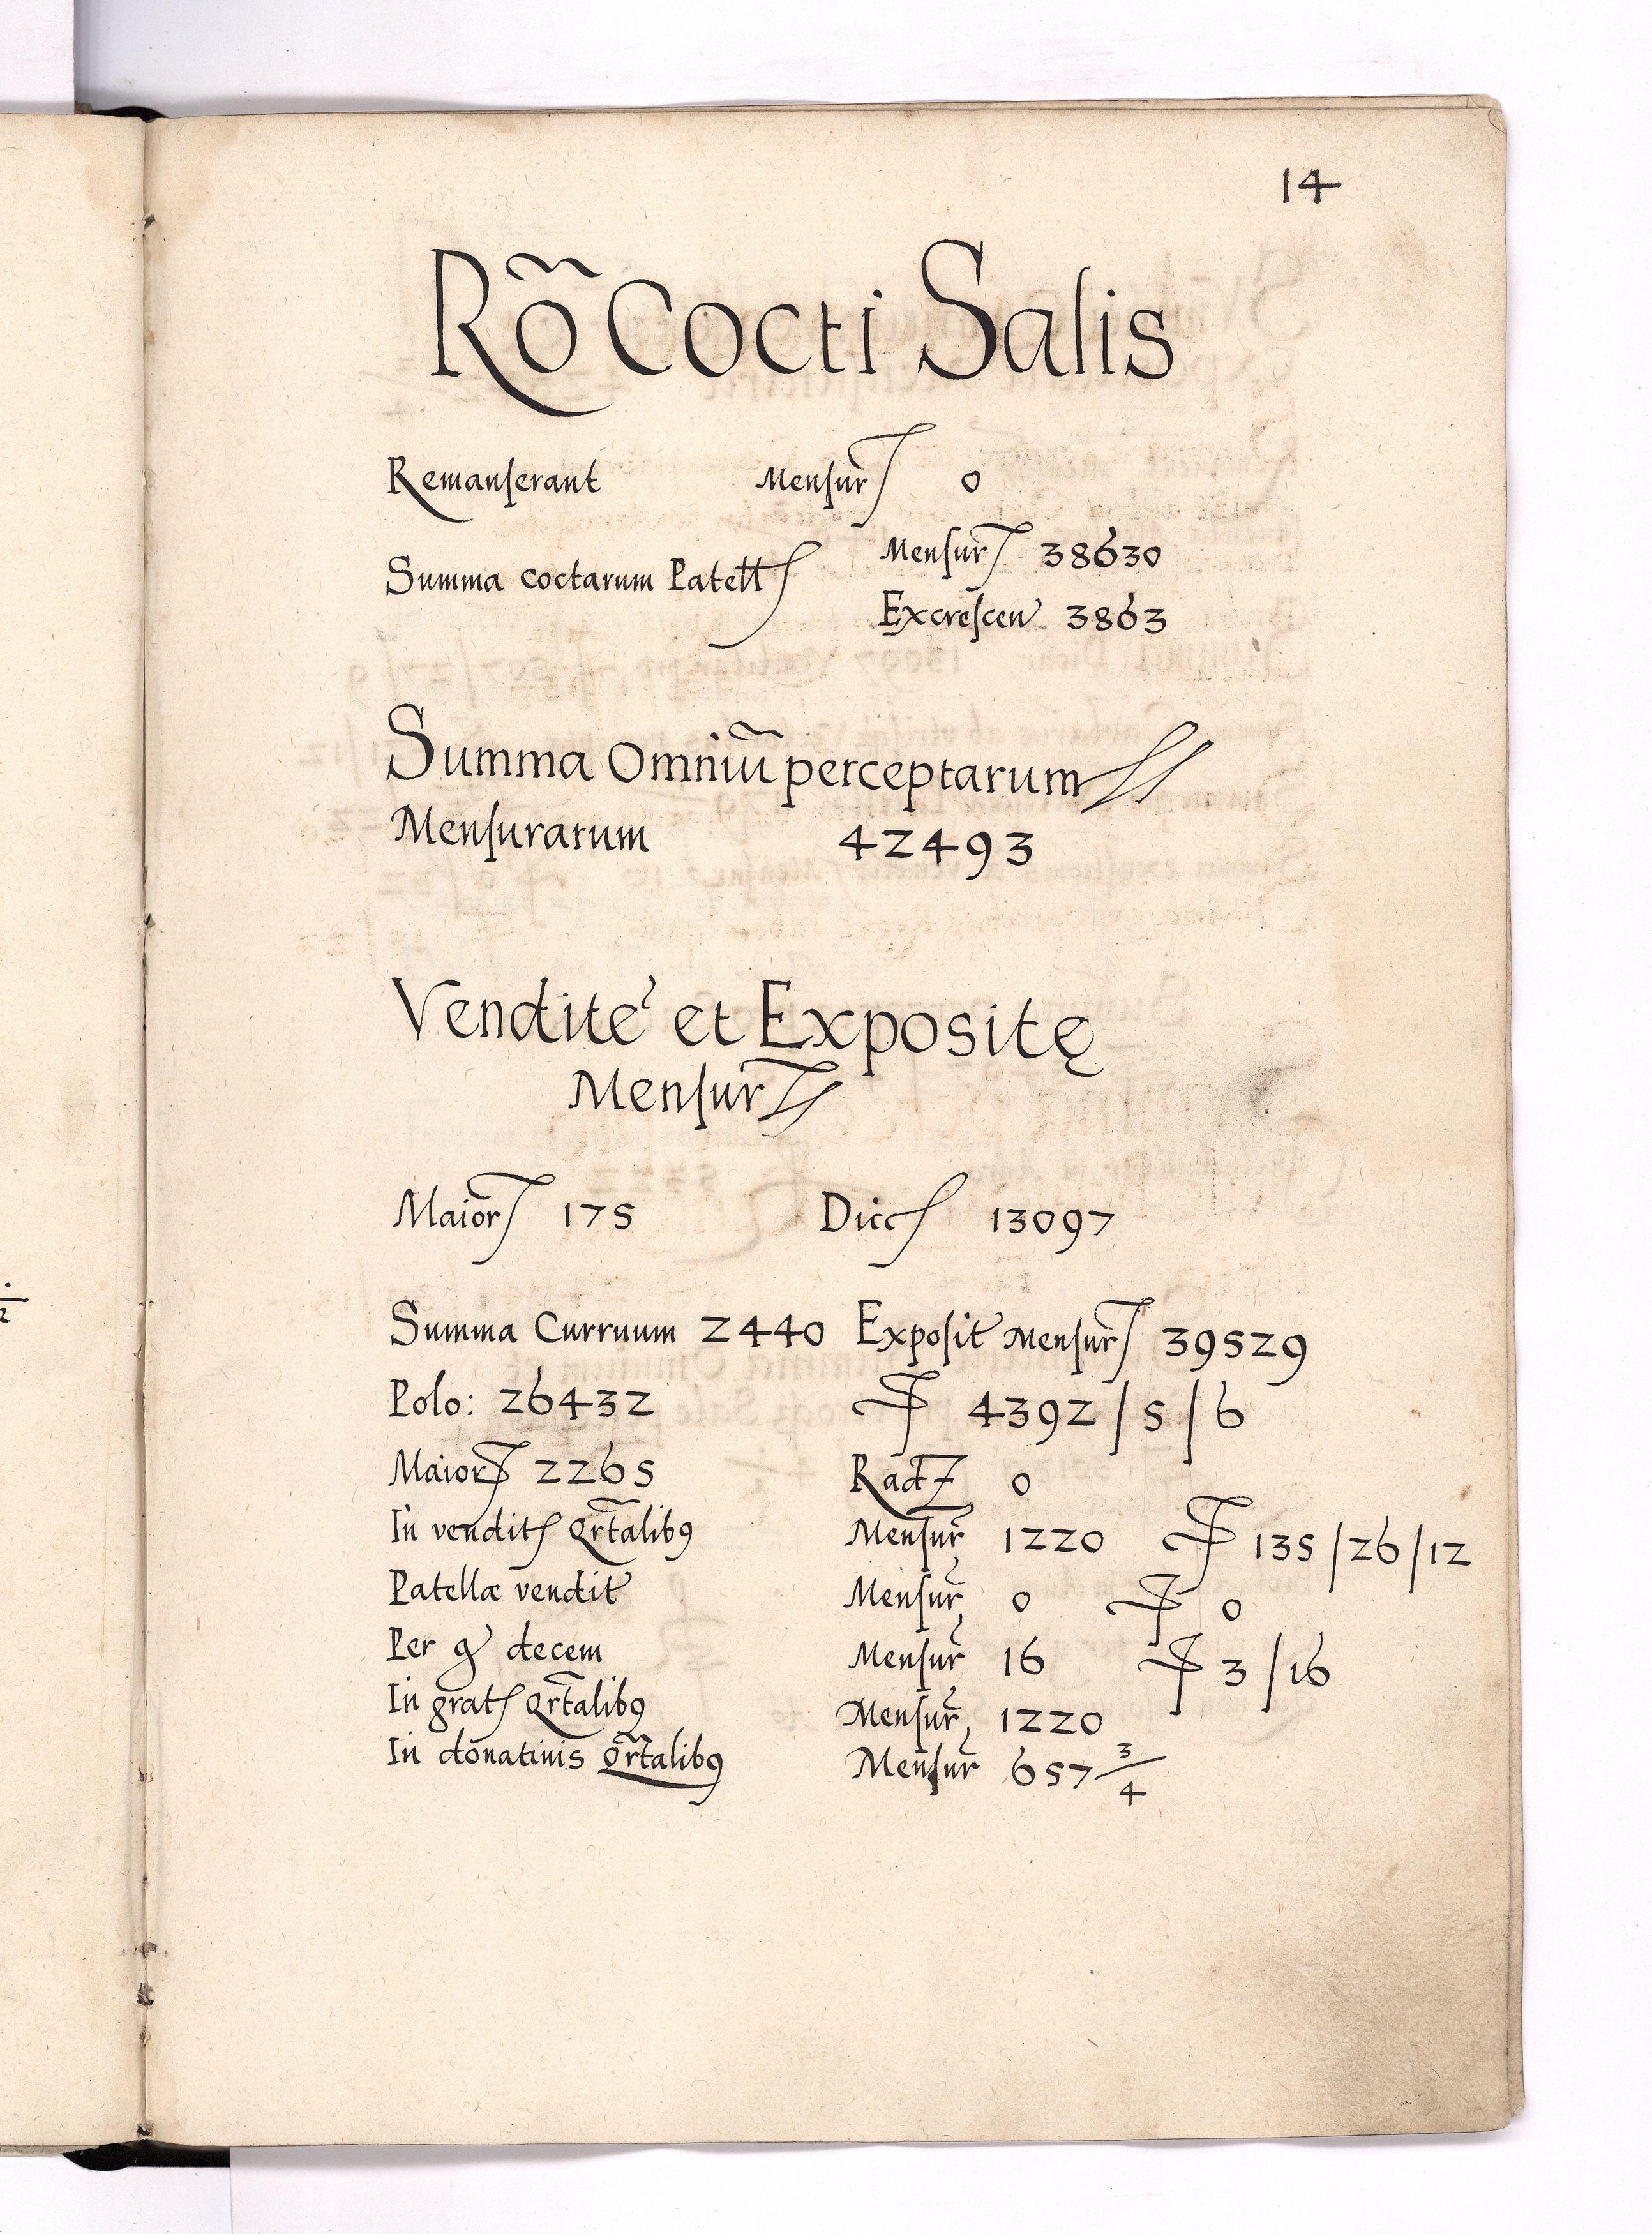 14
Rō Cocti Salis
Remanserant Mensur 0
Summa coctarum Patell Mensur 38630
Excrescen 3863
Summa Omniū perceptarum
Mensurarum 42493
Vendite et Expositę
Mensur
Maior 175 Dicc 13097
Summa Curruum 2440 Exposit Mensur 39529
Polo: 26432 4392 / 5 / 6
Maior 2265 Rad 0
In vendit Qrtalibꝰ Mensur 1220 135 / 26 / 12
Patellæ vendit Mensur 0 0
Per g decem Mensur 16 3 / 16
In grat Qrtalibꝰ Mensur 1220
In donativis Qrtalibꝰ Mensur 657 3/4